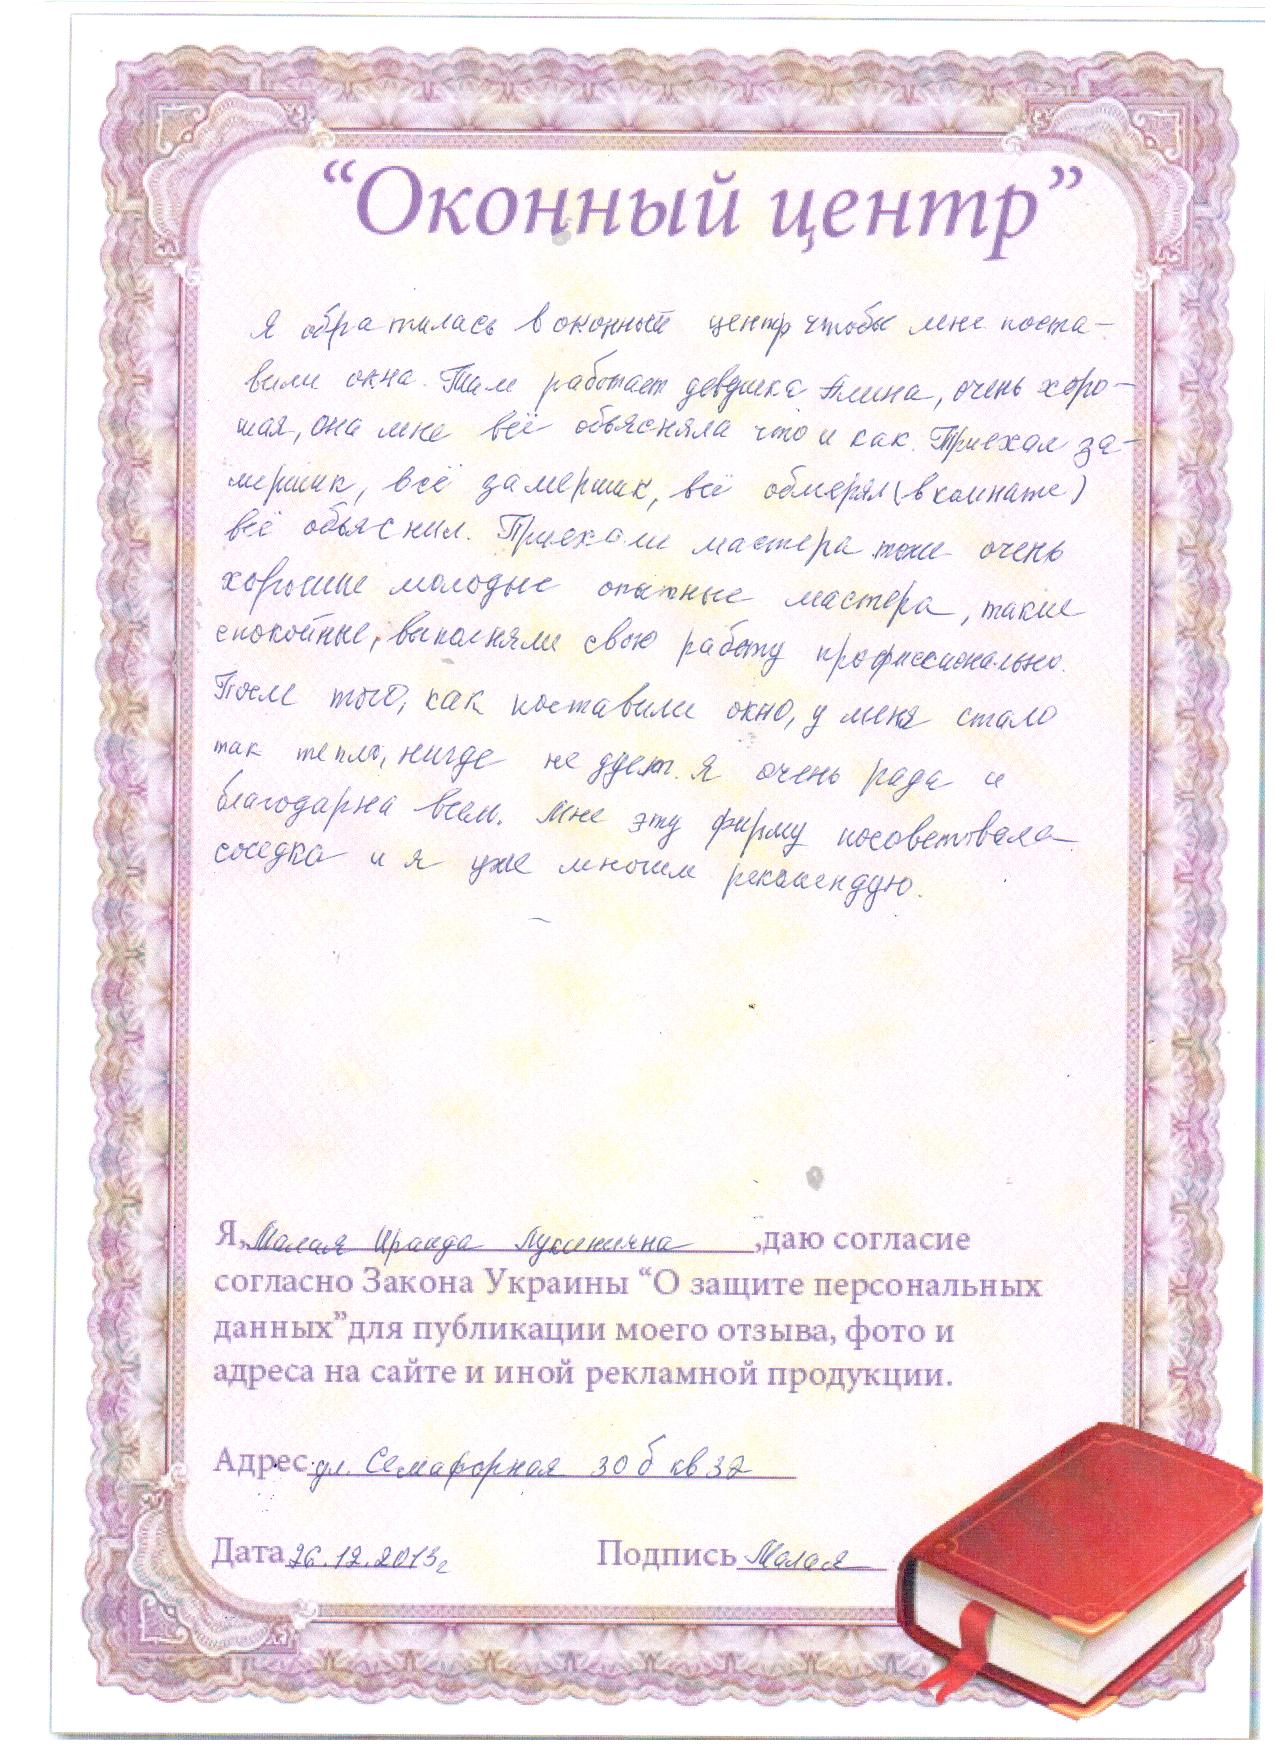 “Оконный центр”
Я обратилась в оконный центр чтобы мне поста-
вили окна. Там работает девушка Алина, очень хоро-
шая, она мне всё объясняла что и как. Приехал за-
мерщик, всё замерщик, всё обмерял (в комнате)
всё объяснил. Приехали мастера тоже очень
хорошие молодые опытные мастера, такие
спокойные, выполняли свою работу профессионально.
После того, как поставили окно, у меня стало
так тепло, нигде не дует. Я очень рада и
благодарна всем. Мне эту фирму посоветовала
соседка и я уже многим рекомендую.
Я, Малая Ираида Лукинична ,даю согласие
согласно Закона Украины “О защите персональных
данных”для публикации моего отзыва, фото и
адреса на сайте и иной рекламной продукции.
Адрес ул. Семафорная 30 б кв 32
Дата 26.12.2013г Подпись Малая